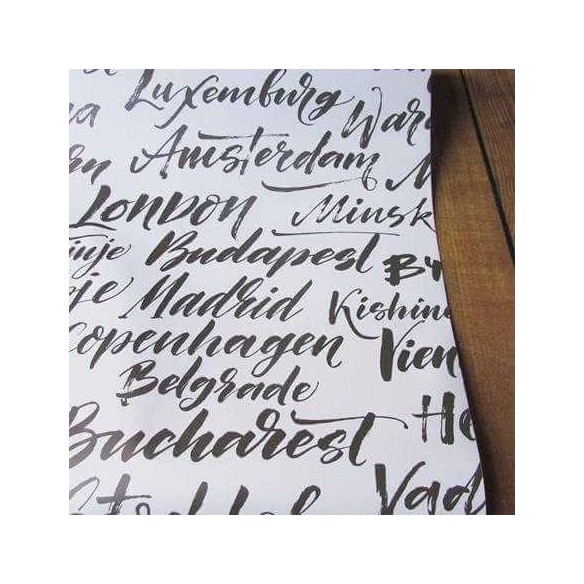 Luxemburg
Amsterdam War
London Minsk
Budapest
Madrid Kishin
Copenhagen Vien
Belgrade
Bucharest He
Vad